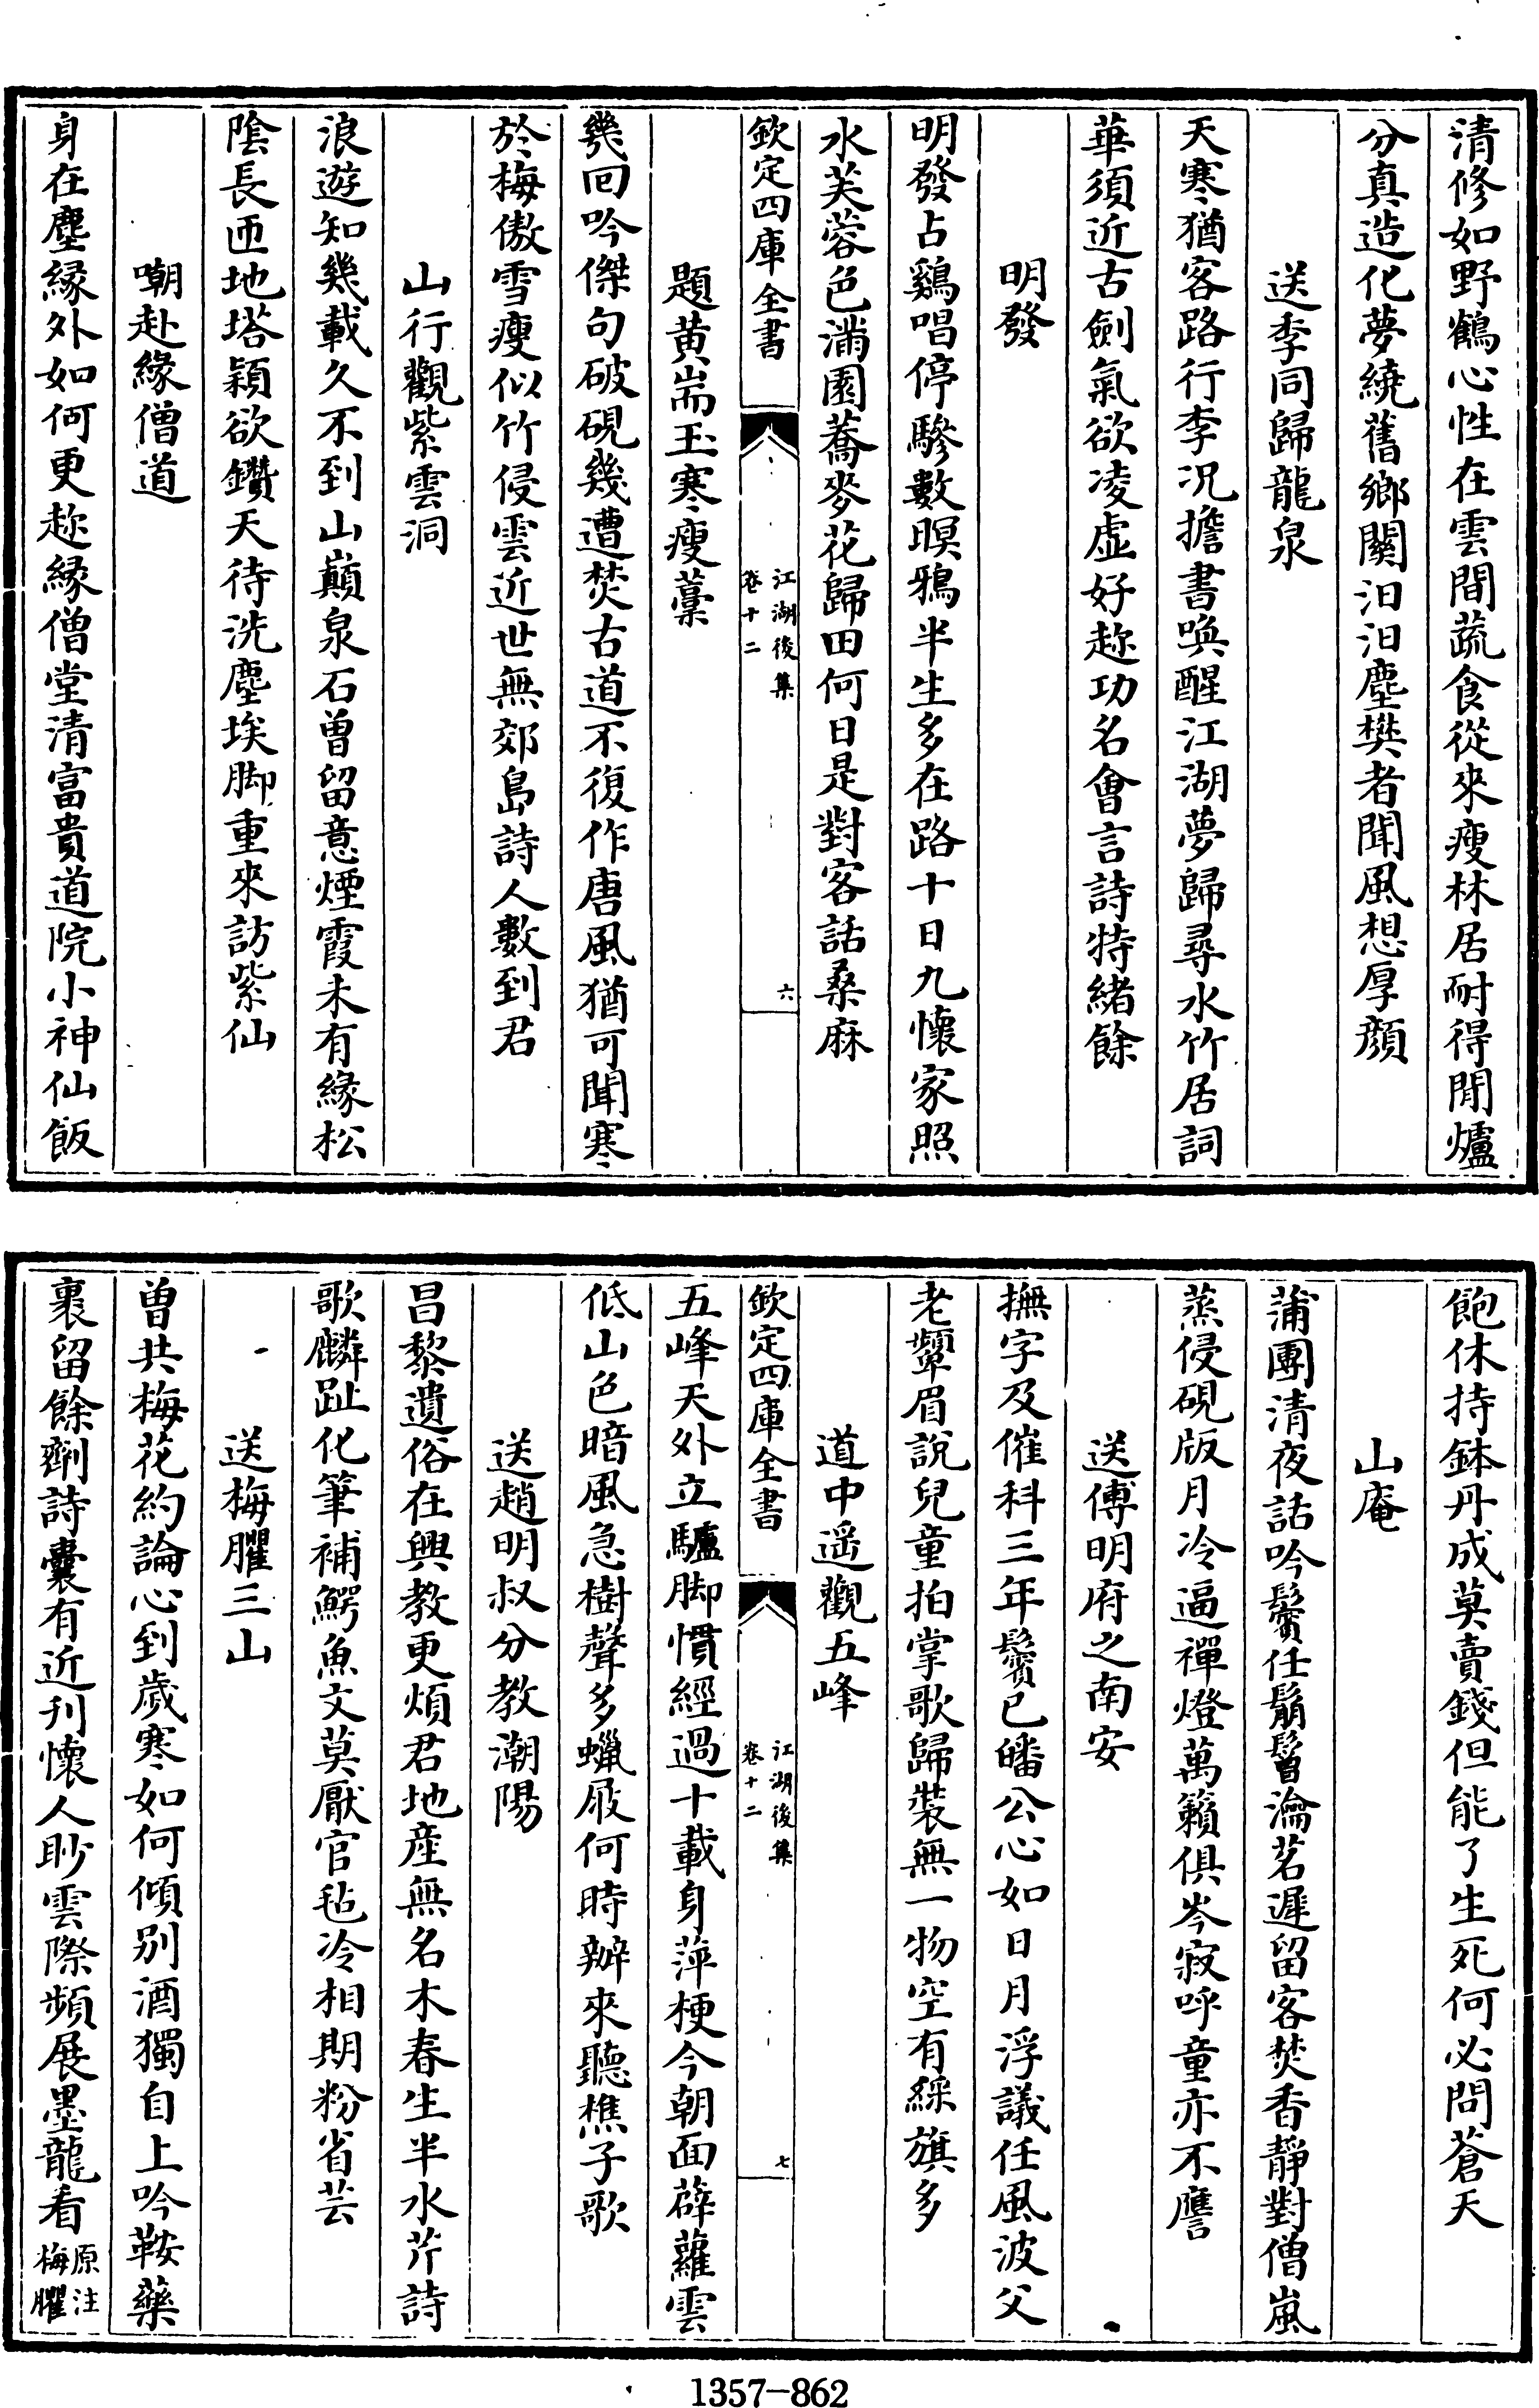 清修如野鶴心性在雲間蔬食從來瘦林居耐得閒爐
分真造化夢繞舊鄉關汨汨塵樊者聞風想厚顔
送李同歸龍泉
天寒猶客路行李況擔書喚醒江湖夢歸尋水竹居詞
華須近古劍氣欲凌虛好趂功名會言詩特緒餘
明發
明發占鷄唱停驂數暝鴉半生多在路十日九懷家照
水芙蓉色滿園蕎麥花歸田何日是對客話桑麻
欽定四庫全書
江湖後集
卷十二
六
題黄耑玉寒瘦藁
幾回吟傑句破硯幾遭焚古道不復作唐風猶可聞寒
於梅傲雪瘦似竹侵雲近世無郊島詩人數到君
山行觀紫雲洞
浪遊知幾載久不到山巔泉石曾留意煙霞未有緣松
陰長匝地塔穎欲鑽天待洗塵埃脚重來訪紫仙
嘲赴緣僧道
身在塵緣外如何更趂緣僧堂清富貴道院小神仙飯
飽休持鉢丹成莫賣錢但能了生死何必問蒼天
山庵
蒲團清夜話吟鬢任鬅鬙瀹茗遲留客焚香靜對僧嵐
蒸侵硯版月冷逼禪燈萬籟俱岑寂呼童亦不譍
送傅明府之南安
撫字及催科三年鬢已皤公心如日月浮議任風波父
老顰眉說兒童拍掌歌歸裝無一物空有綵旗多
道中遥觀五峰
欽定四庫全書
江湖後集
卷十二
七
五峰天外立驢脚慣經過十載身萍梗今朝面薜蘿雲
低山色暗風急樹聲多蠟屐何時辦來聽樵子歌
送趙明叔分教潮陽
昌黎遺俗在興教更煩君地産無名木春生半水芹詩
歌麟趾化筆補鰐魚文莫厭官毡冷相期粉省芸
送梅臞三山
曾共梅花約論心到歲寒如何傾别酒獨自上吟鞍藥
裹留餘劑詩囊有近刊懷人眇雲際頻展墨龍看原注
梅臞
1357-862